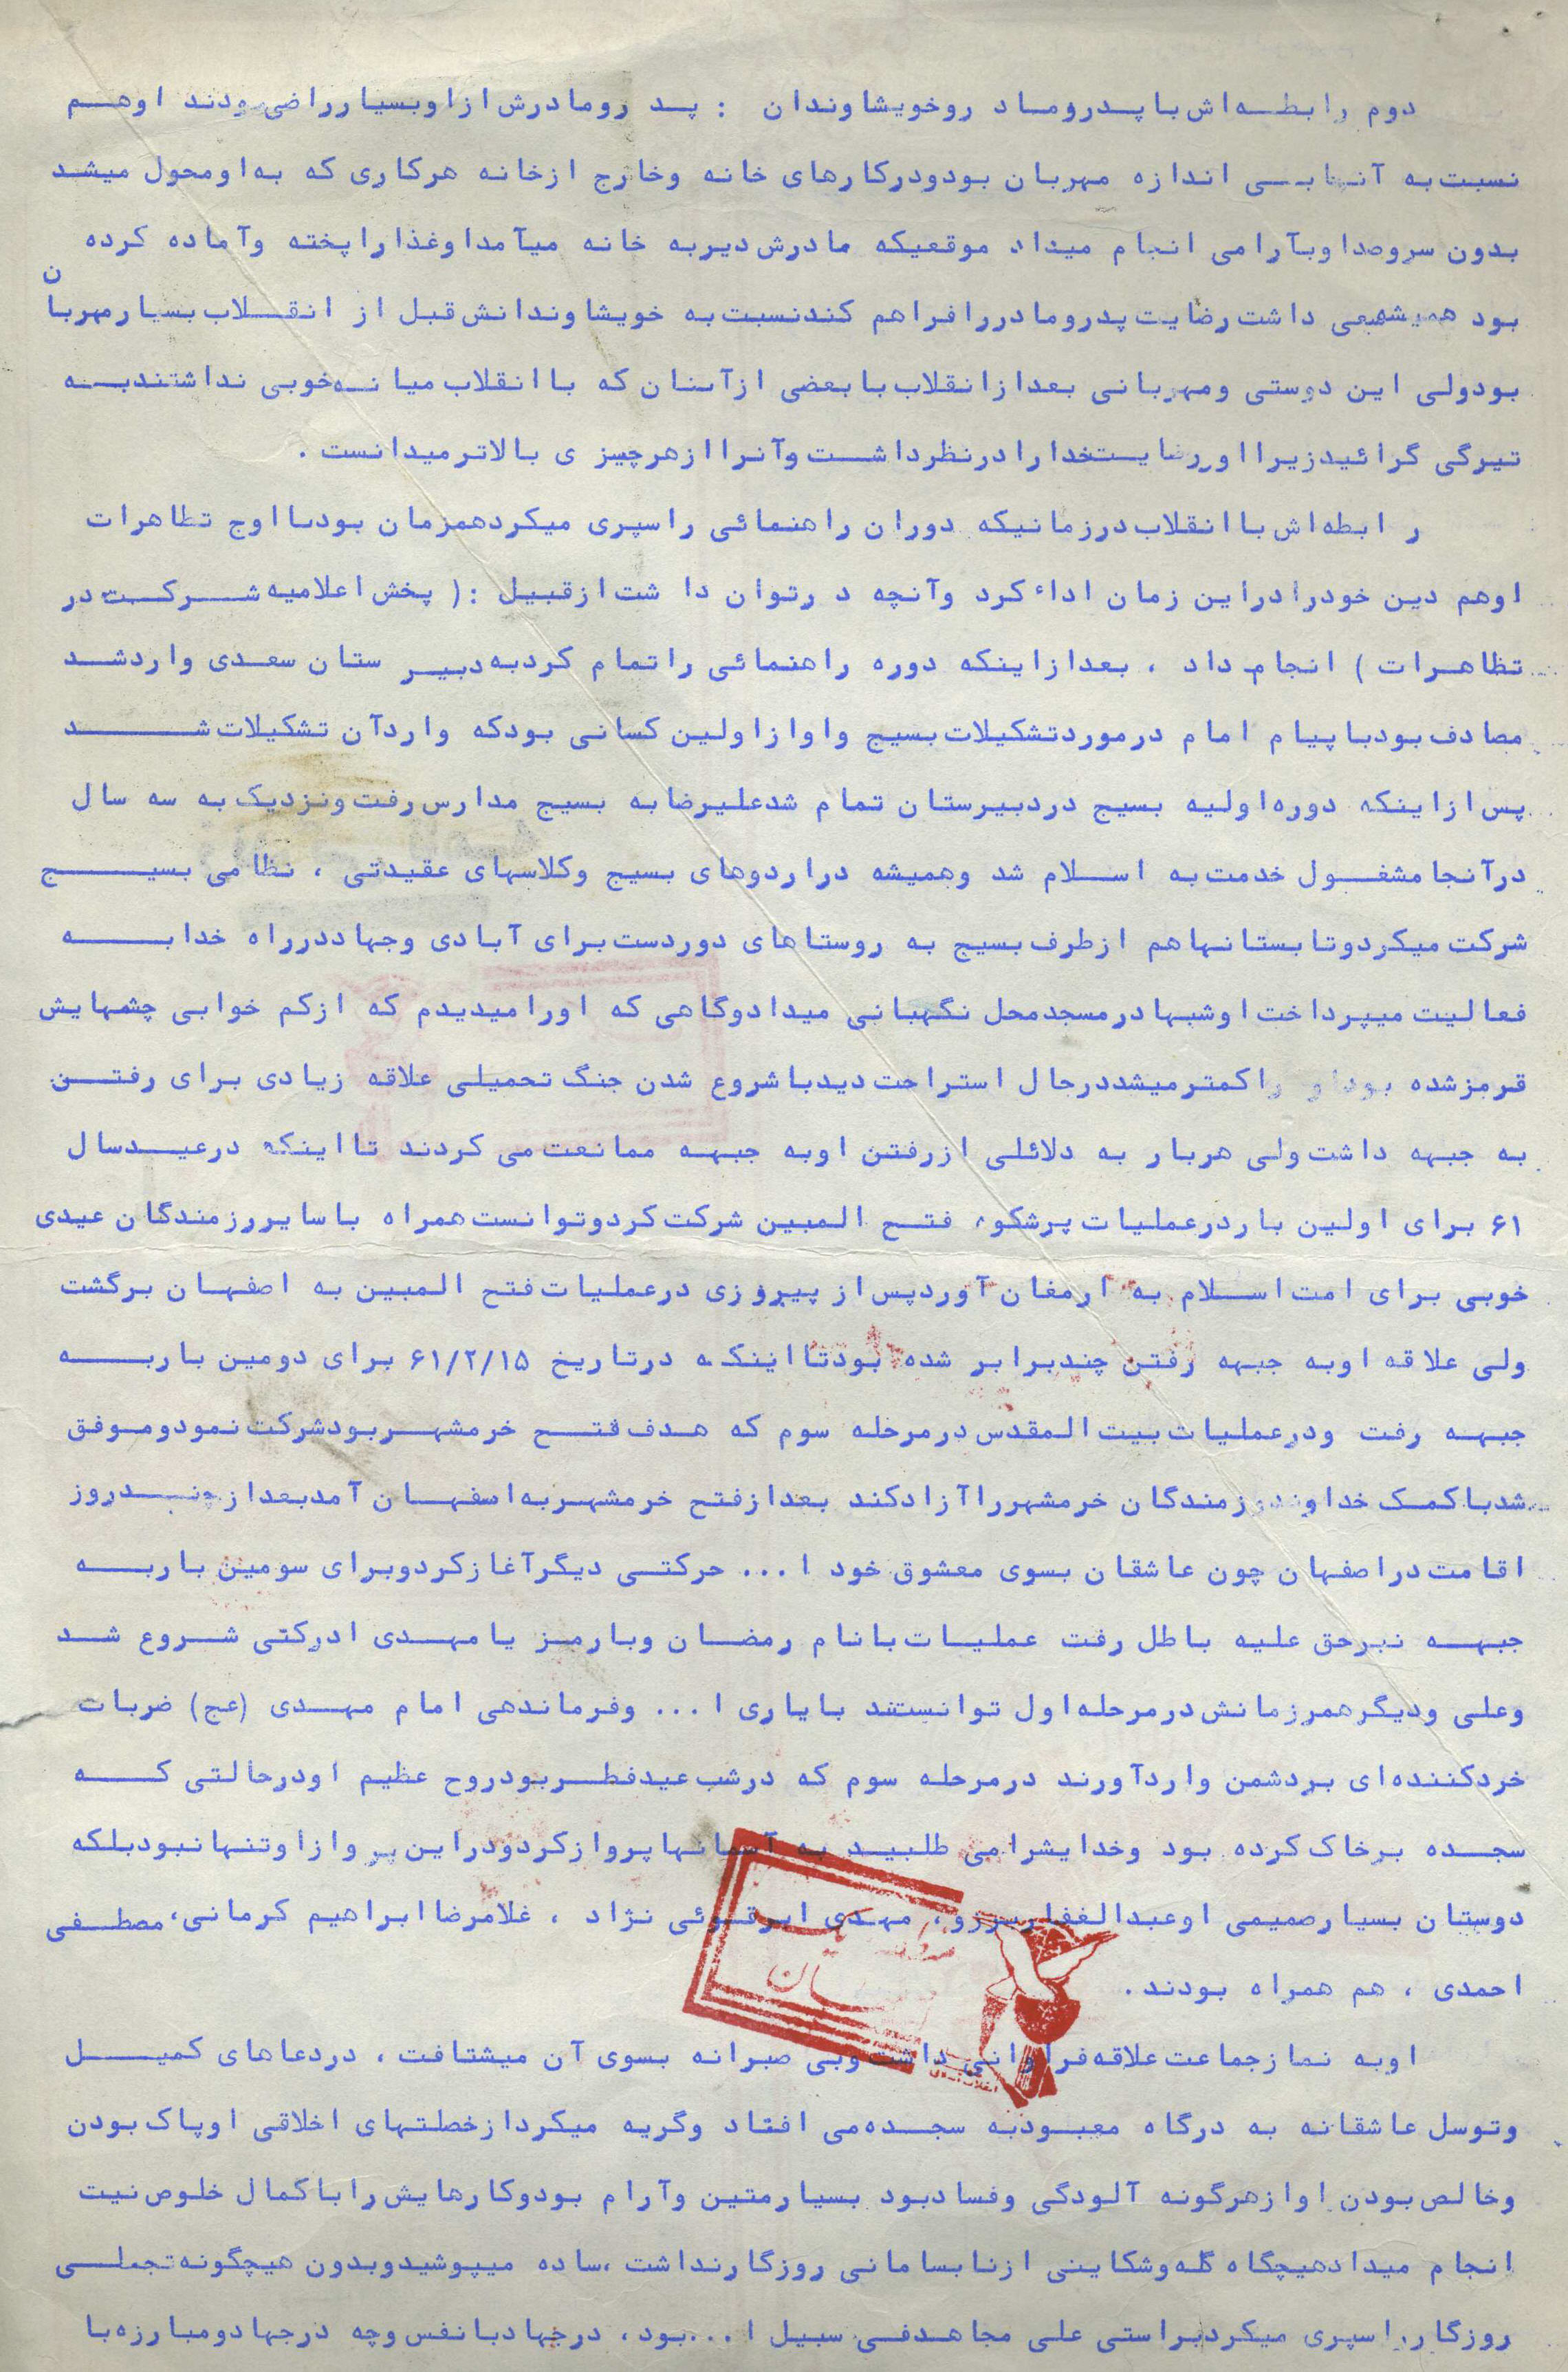 دوم رابطه‌اش با پدر و مادر و خویشاوندان : پدر و مادرش از او بسیار راضی بودند او هم
نسبت به آنها بی اندازه مهربان بود و در کارهای خانه و خارج از خانه هر کاری که به او محول میشد
بدون سر و صدا و بآرامی انجام میداد موقعیکه مادرش دیر به خانه میآمد او غذا را پخته و آماده کرده
بود همیشه سعی داشت رضایت پدر و مادر را فراهم کند نسبت به خویشاوندانش قبل از انقلاب بسیار مهربان
بود ولی این دوستی و مهربانی بعد از انقلاب با بعضی از آنان که با انقلاب میانه خوبی نداشتند به
تیرگی گرائید زیرا او رضایت خدا را در نظر داشت و آنرا از هر چیزی بالاتر میدانست .
رابطه‌اش با انقلاب در زمانیکه دوران راهنمائی را سپری میکرد همزمان بود با اوج تظاهرات
او هم دین خود را در این زمان اداء کرد و آنچه در توان داشت از قبیل :( پخش اعلامیه شرکت در
تظاهرات ) انجام داد ، بعد از اینکه دوره راهنمائی را تمام کرد به دبیرستان سعدی وارد شد
مصادف بود با پیام امام در مورد تشکیلات بسیج و او از اولین کسانی بود که وارد آن تشکیلات شد
پس از اینکه دوره اولیه بسیج در دبیرستان تمام شد علیرضا به بسیج مدارس رفت و نزدیک به سه سال
در آنجا مشغول خدمت به اسلام شد و همیشه در اردوهای بسیج و کلاسهای عقیدتی ، نظامی بسیج
شرکت میکرد و تابستانها هم از طرف بسیج به روستاهای دوردست برای آبادی و جهاد در راه خدا به
فعالیت میپرداخت او شبها در مسجد محل نگهبانی میداد و گاهی که او را میدیدم که از کم خوابی چشمهایش
قرمز شده بود او را کمتر میشد در حال استراحت دید با شروع شدن جنگ تحمیلی علاقه زیادی برای رفتن
به جبهه داشت ولی هر بار به دلائلی از رفتن او به جبهه ممانعت می کردند تا اینکه در عید سال
۶۱ برای اولین بار در عملیات پرشکوه فتح المبین شرکت کرد و توانست همراه با سایر رزمندگان عیدی
خوبی برای امت اسلام به ارمغان آورد پس از پیروزی در عملیات فتح المبین به اصفهان برگشت
ولی علاقه او به جبهه رفتن چند برابر شده بود تا اینکه در تاریخ ۶۱/۲/۱۵ برای دومین بار به
جبهه رفت و در عملیات بیت المقدس در مرحله سوم که هدف فتح خرمشهر بود شرکت نمود و موفق
شد با کمک خداوند رزمندگان خرمشهر را آزاد کند بعد از فتح خرمشهر به اصفهان آمد بعد از چند روز
اقامت در اصفهان چون عاشقان بسوی معشوق خود ا... حرکتی دیگر آغاز کرد و برای سومین بار به
جبهه نبرحق علیه باطل رفت عملیات با نام رمضان و با رمز یا مهدی ادرکنی شروع شد
و علی و دیگر همرزمانش در مرحله اول توانستند با یاری ا... و فرماندهی امام مهدی (عج) ضربات
خردکننده‌ای بر دشمن وارد آورند در مرحله سوم که در شب عید فطر بود روح عظیم او در حالتی که
سجده بر خاک کرده بود و خدایش را می طلبید به آسمانها پرواز کرد و در این پرواز او تنها نبود بلکه
دوستان بسیار صمیمی او عبدالغفار ، مهدی ابرقوئی نژاد ، غلامرضا ابراهیم کرمانی، مصطفی
احمدی ، هم همراه بودند .
او به نماز جماعت علاقه فراوانی داشت و بی صبرانه بسوی آن میشتافت ، در دعاهای کمیل
و توسل عاشقانه به درگاه معبود به سجده می افتاد و گریه میکرد از خصلتهای اخلاقی او پاک بودن
و خالص بودن او از هر گونه آلودگی و فساد بود بسیار متین و آرام بود و کارهایش را با کمال خلوص نیت
انجام میداد هیچگاه گله و شکایتی از نابسامانی روزگار نداشت ، ساده میپوشید و بدون هیچگونه تجملی
روزگار را سپری میکرد براستی علی مجاهد فی سبیل ا... بود ، در جهاد با نفس و چه در جهاد و مبارزه با